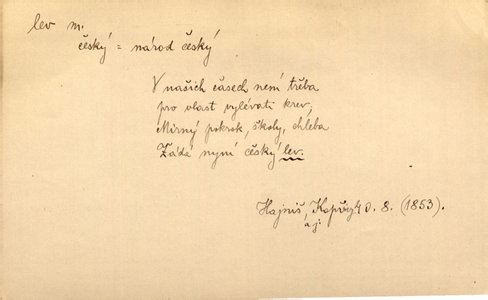 lev m.
český = národ český
V našich časech není třeba
pro vlast vylévati krev,
Mírný pokrok, školy, chleba
Žádá nyní český lev.
Hajniš, Kopřivy 40. 8. (1853).
a j.